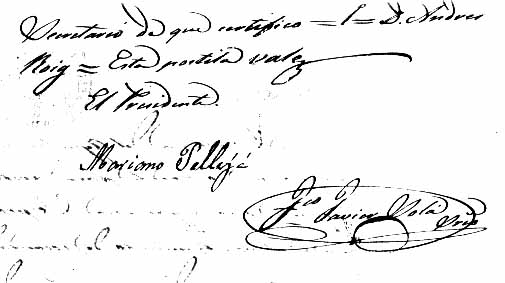 Secretario de que certifico = l = D. Andres
Roig = Esta postila vale
El Presidente.
Mariano Pellejá
Fco Javier Volá
Srio